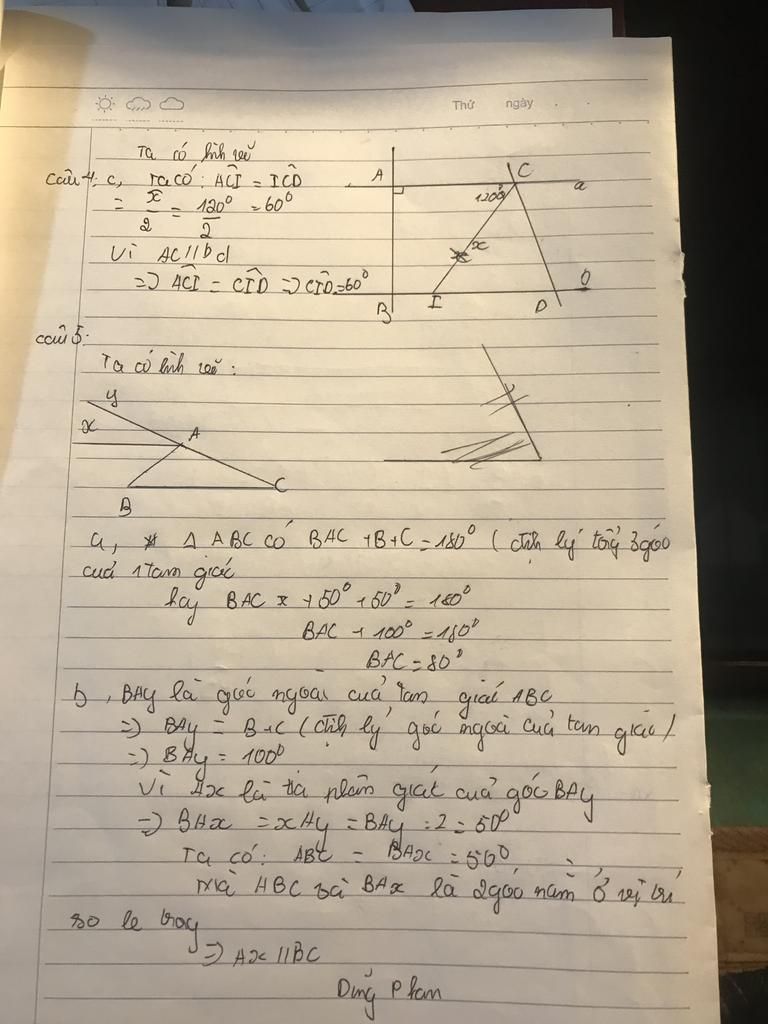 Thứ ngày
Ta có hình vẽ
Câu 4: c, Ta có: ACI = ICD
= x/2 = 120°/2 = 60°
Vì AC // bd
=> ACI = CID => CID = 60°
A
C
a
120°
x
B
I
D
Câu 5:
Ta có hình vẽ:
y
x
A
B
C
a, Δ ABC có BAC + B + C = 180° (định lý tổng 3 góc
của 1 tam giác
hay BAC + 50° + 50° = 180°
BAC + 100° = 180°
BAC = 80°
b, BAy là góc ngoài của tam giác ABC
=> BAy = B + C (định lý góc ngoài của tam giác)
=> BAy = 100°
Vì Ax là tia phân giác của góc BAy
=> BAx = xAy = BAy : 2 = 50°
Ta có: ABC = BAx = 50°
Mà ABC và BAx là 2 góc nằm ở vị trí
so le trong
=> Ax // BC
Dũng Phan